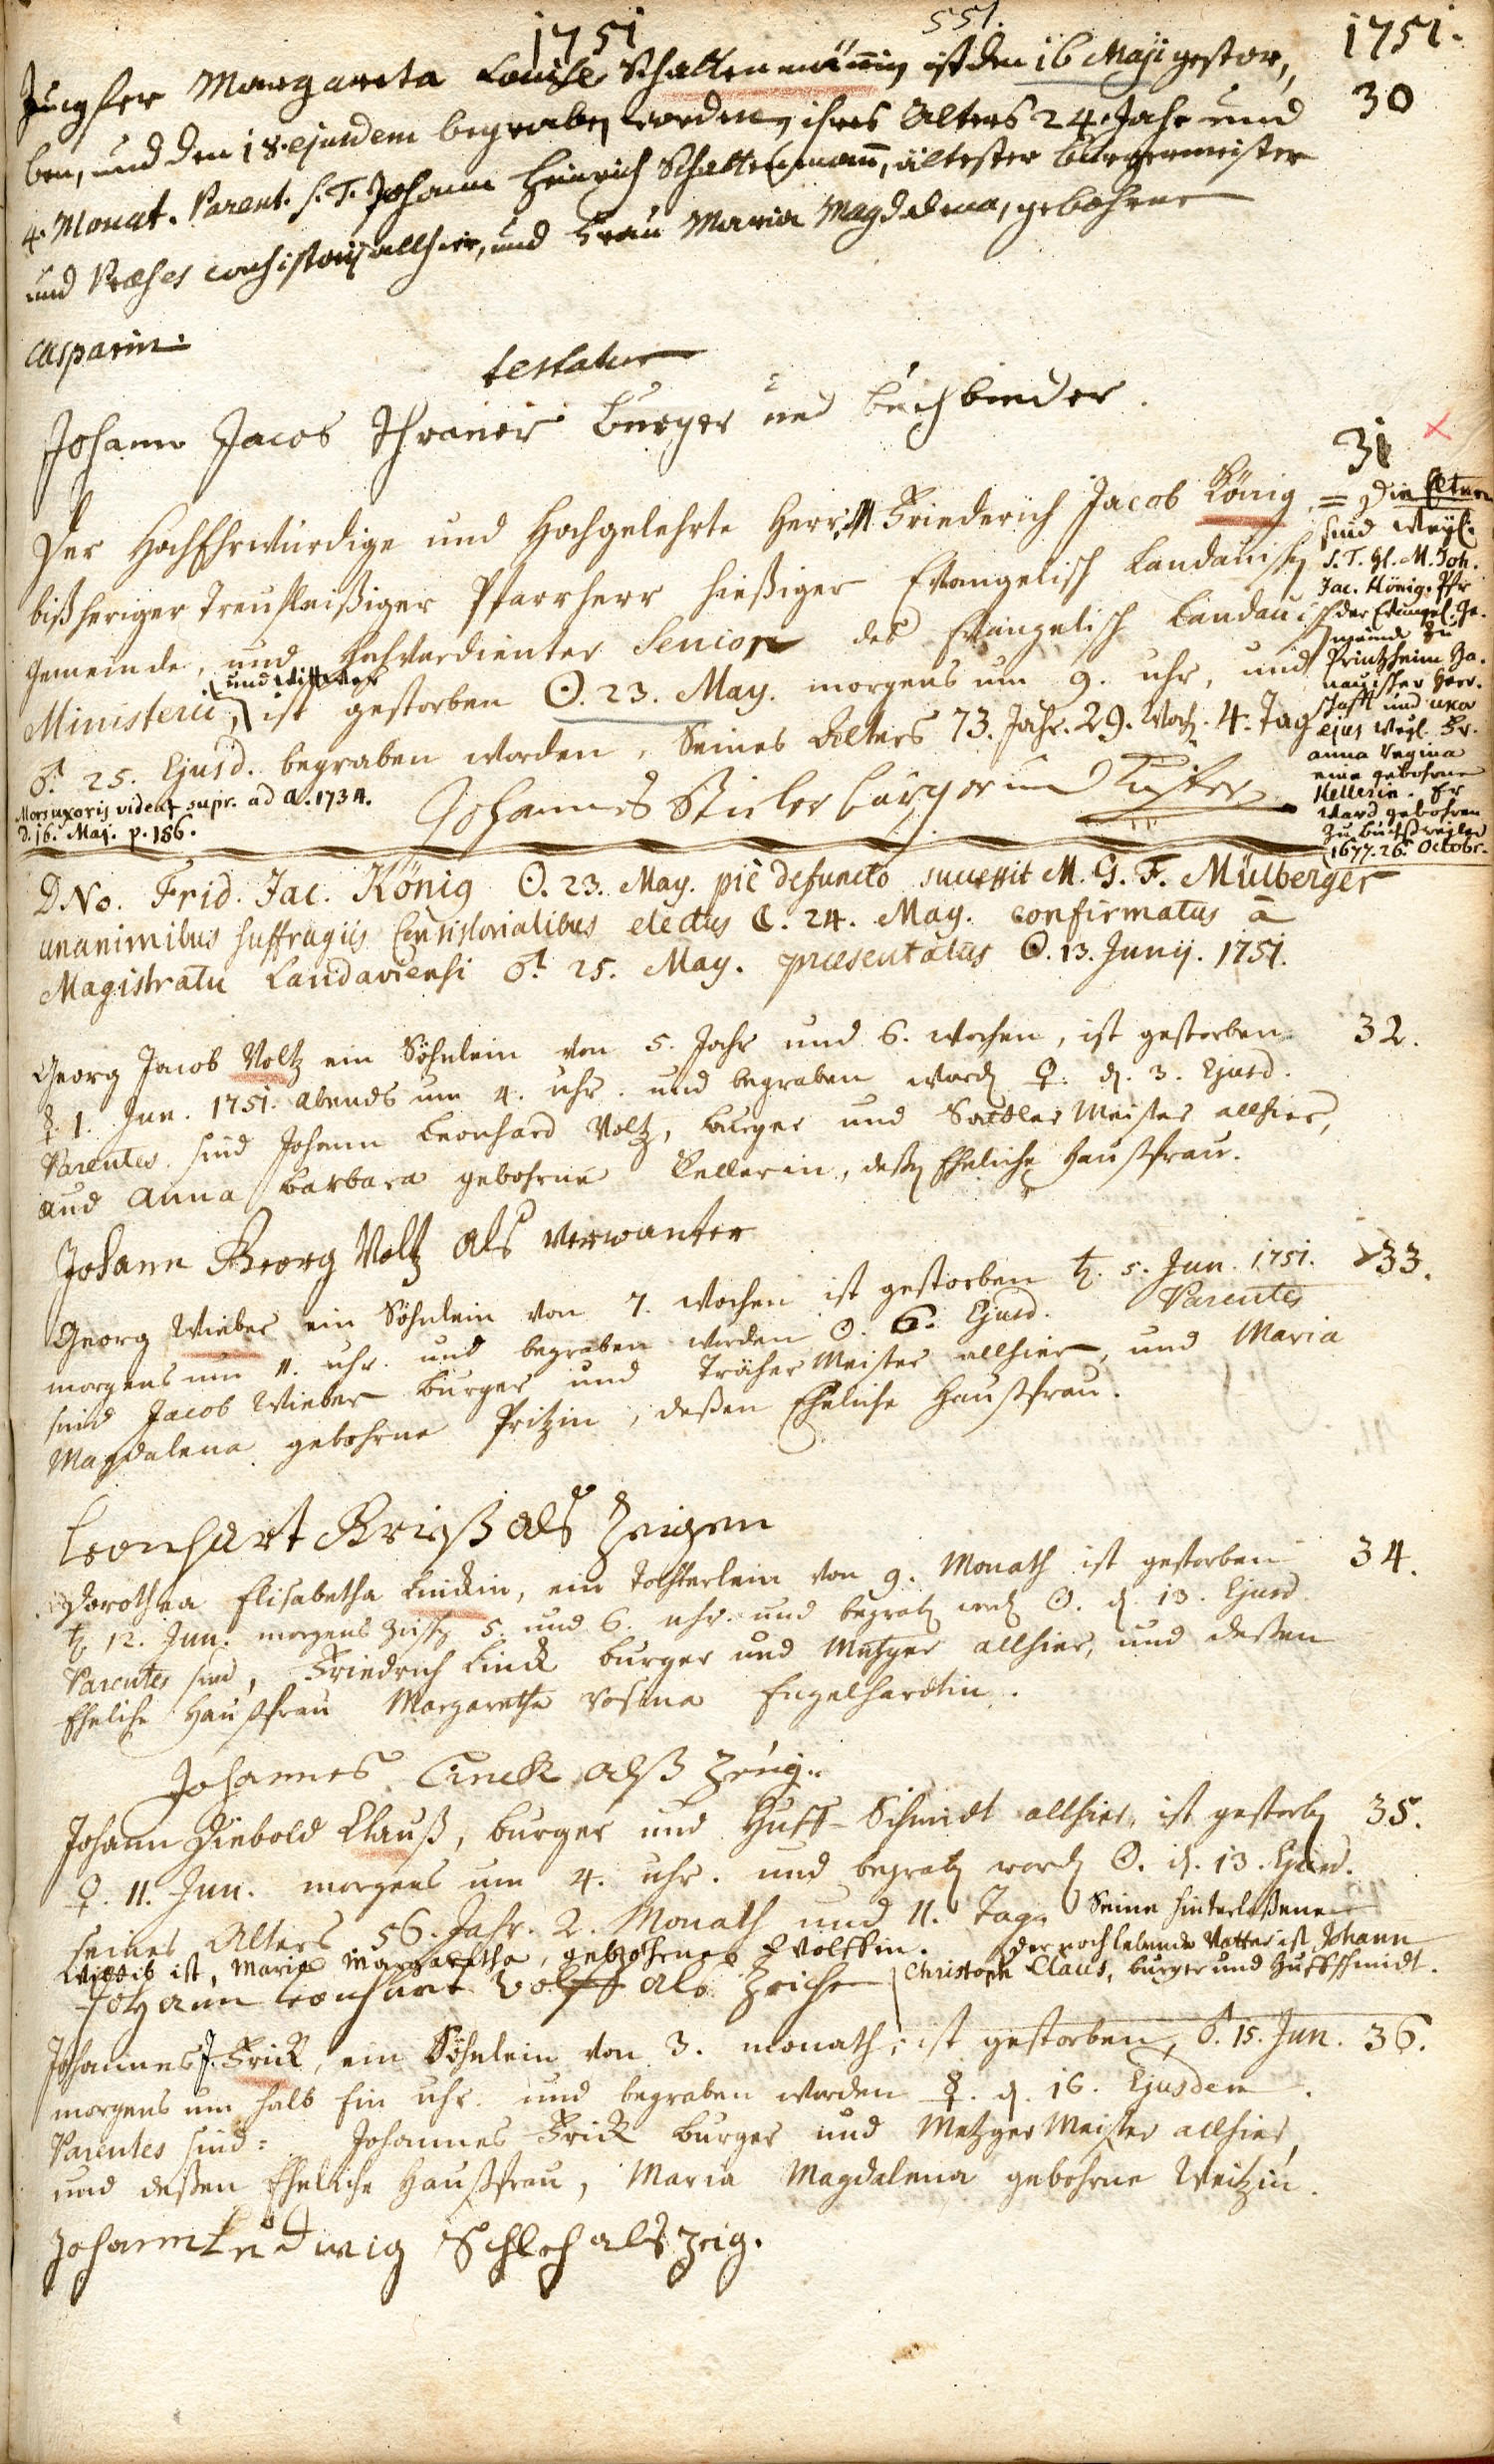 551.
1751
1751.
Jungfer Margareta Louise Schattenmännin ist den 16 Maji gestor,
30
ben, und den 18. ejusdem begraben worden, ihres Alters 24. Jahr und
4. Monat. Parent. S. T. Johann Heinrich Schattenmann, ältester Burgermeister
und Præses consistorij allhier, und Frau Maria Magdalena, gebohrne
Casparin.
testatur
Johann Jacob Thraner Burger und buchbinder.
31
Der HochEhrwürdige und Hochgelehrte Herr, M. Friederich Jacob König,
bißheriger Treufleißiger Pfarrherr hießiger Evangelisch Landauisch
Gemeinde, und Hochverdienter Senior des Evangelisch Landauisch
Ministerii, und Wittwer ist gestorben ☉. 23. May. morgens um 9. uhr, und
♂ 25. Ejusd. begraben worden. Seines Alters 73. Jahr. 29. Woch. 4. Tag
= Die Eltern
sind Weyl.
S. T. H. M. Joh.
Jac. König. Pfr
der Evangel. Ge-
meind zu
Printzheim Ha-
nauischer Herr-
schafft und uxor
ejus Weyl. Fr.
anna Regina
eine gebohrne
Kellerin. Er
ward gebohren
zu Buchsweyler
1677. 26. Octobr.
Mors uxoris videat. supr. ad a. 1734.
d. 16. Maj. p. 186.
Johannes Stieler burger und Küfer
DNo. Frid. Jac. König ☉. 23. May. piè defuncto successit M. G. F. Mülberger
unanimibus suffragiis Consistorialibus electus ☾. 24. May. confirmatus à
Magistratu Landaviensi ♂ 25. May. præsentatus ☉. 13. Junij. 1751.
Georg Jacob Voltz ein Söhnlein von 5. Jahr und 6. wochen, ist gestorben
32.
☿. 1. Jun. 1751. abends um 4. uhr. und begraben word. ♀. d. 3. Ejusd.
Parentes. sind Johann Leonhard Voltz, burger und Sattler Meister allhier,
und Anna Barbara gebohrne Kellerin, deßen Eheliche Haußfrau.
Johann Georg Voltz als verwanter
Georg Wieber ein Söhnlein von 7. wochen ist gestorben ♄. 5. Jun. 1751.
33.
morgens um 11. uhr. und begraben worden ☉. 6. Ejusd. Parentes
sind Jacob Wieber burger und Träher Meister allhier, und Maria
Magdalena gebohrne Pritzin, deßen Eheliche Haußfrau.
Leonhart Krieß als Zeigen
Dorothea Elisabetha Linckin, ein Töchterlein von 9. Monath ist gestorben
34.
♄ 12. Jun. morgens zwisch. 5. und 6. uhr. und begrab. word. ☉. d. 13. Ejusd.
Parentes sind, Friedrich Linck burger und Metzger allhier, und deßen
Eheliche Haußfrau Margaretha Rosina Engelhardtin.
Johannes Linck alß zeüg..
Johann Diebold Clauß, burger und Huff-Schmidt allhier, ist gestorb.
35.
♀. 11. Jun. morgens um 4. uhr. und begrab. word. ☉. d. 13. Ejusd.
seines Alters 56. Jahr. 2. Monath und 11. Tage Seine hinterlaßene
Wittib ist, Maria Margaretha, gebohrne Wolffin. der noch lebende Vatter ist Johann
Christoph Claus, burger und Huffschmidt.
Johann Leonhart Volff als Zeiche
Johannes J. Frick, ein Söhnlein von 3. monath, ist gestorben, ♂. 15. Jun.
36.
morgens um halb Ein uhr. und begraben worden ☿. d. 16. Ejusdem.
Parentes sind: Johannes Frick burger und Metzger Meister allhier,
und deßen Eheliche Haußfrau, Maria Magdalena gebohrne Weitzin.
Johann Ludwig Schloh als zeig.